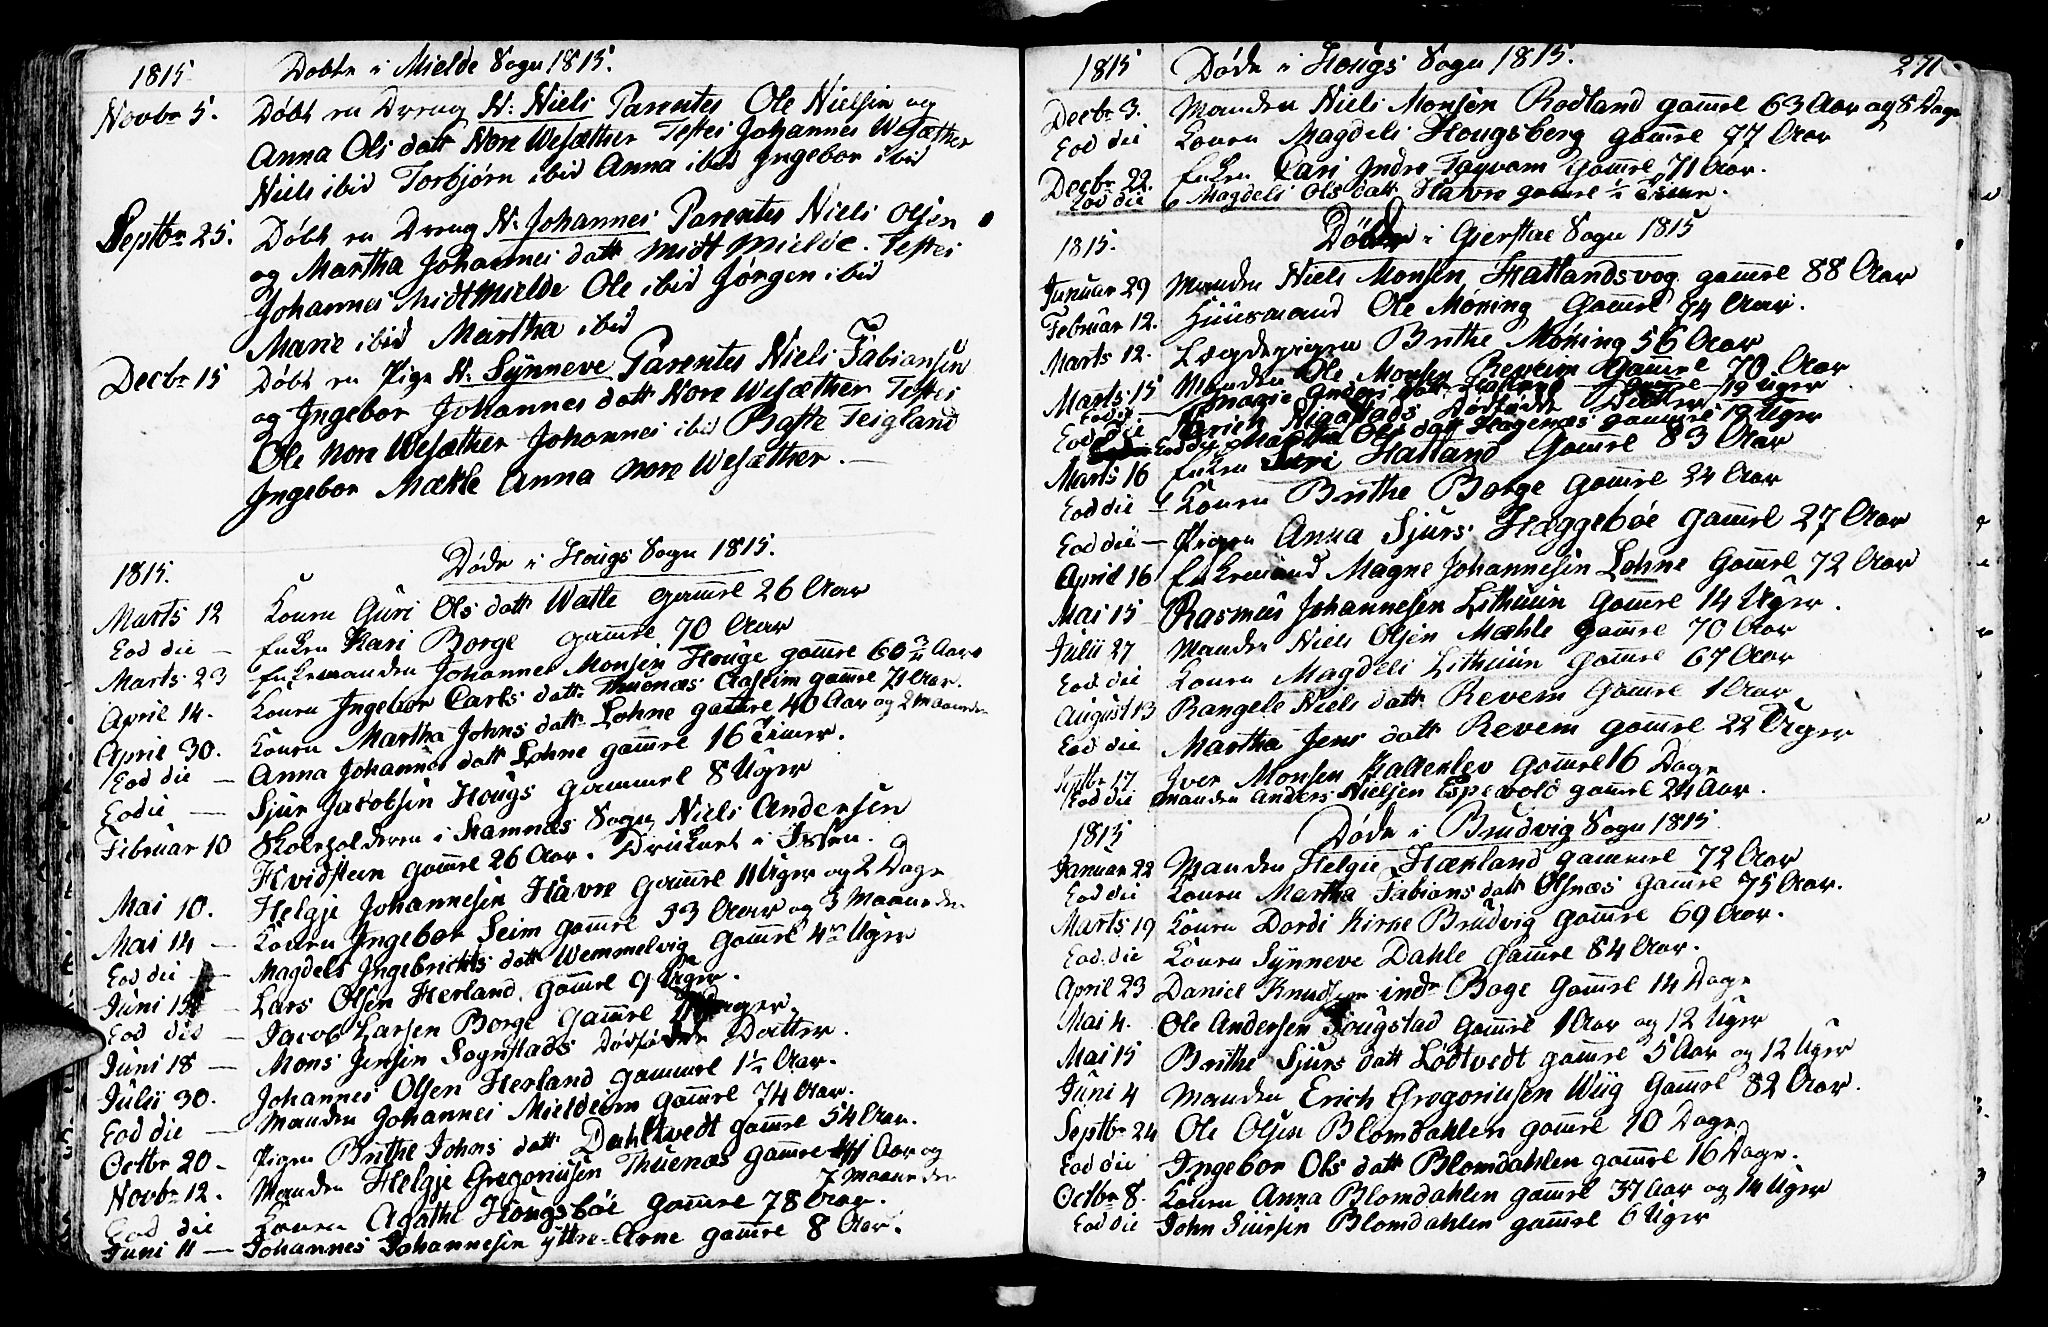 1815 Døbte i Mielde Sogn 1815.
Novbr 5. Døbt en Dreng N: Niels Parentes Ole Nielsen og
Anna Ols datt Nore Wesæther Testes Johannes Wesæther
Niels ibid Torbjørn ibid Anna ibid Ingebor ibid
Septbr 25. Døbt en Dreng N. Johannes Parentes Niels Olsen
og Martha Johannes datt Midt Mielde. Testes
Johannes Midtmielde Ole ibid Jørgen ibid
Marie ibid Martha ibid
Decbr 15 Døbt en Pige N: Synneve Parentes Niels Fabiansen
og Ingebor Johannes datt Nore Wesæther Testes
Ole Nore Wesæther Johannes ibid Teigland
Ingebor Mæhle Anna Nore Wesæther. —
1815. Døde i Hougs Sogn 1815.
Marts 12 Konen Guri Ols datt Watle gamel 26 Aar
Eod die — Enken Kari Borge gamel 70 Aar
Marts 23 Enkemanden Johannes Monsen Houge gamel 60 Aar
April 14. Konen Ingebor Carls datt Thuenæs Aaseim gamel 71 Aar.
April 30. Konen Martha Johns datt Lohne gamel 40 Aar og 2 Maaneder
Eod die — Anna Johannes datt Lohne gamel 16 Timer.
Eodie — Sjur Jacobsen Hougs gammel 8 Uger
Februar 10 Skoleholderen i Hamnæs Sogn Niels Andersen
Hvidsteen gamel 26 Aar. Druknet i Isen.
Mai 10. Helgje Johannesen Havre gamel 11 Uger og 2 Dage
Mai 14 — Konen Ingebor Seim gamel 33 Aar og 3 Maaneder
Eod die — Magdeli Ingebrichts datt Wemmelvig gamel 4 Uger
Juni 15 — Lars Olsen Herland gamel 9 Uger.
Eod die — Jacob Larsen Borge gamel
Juni 18 — Mons Jensen Sognstads Dødfødde Datter.
Julii 30. Johannes Olsen Herland gammel 1½ Aar.
Eod die — Manden Johannes Mieldeim gamel 74 Aar.
Octbr 20 - Pigen Brithe Johns datt Dahltvedt gamel 54 Aar.
Novbr 12. Manden Helgje Gregoriusen Thuenæs gamel Aar og
7 Maaneder
Eod die Konen Agathe Hougsbøe gamel 78 Aar.
Juni 11 — Johannes Johannesen yttre-Arne gamel 8 Aar.
271
1815 Døde i Hougs Sogn 1815.
Decbr 3. Manden Niels Monsen Rodland gamel 63 Aar og 8 Dage
Eod die Konen Magdeli Hougsberg gamel 77 Aar
Decbr 22. Enken Kari Indre-Tayvam gamel 71 Aar.
Eod die Magdeli Ols datt Havre gamel ½ Time.
1815. Døde i Gierstae Sogn 1815
Januar 29 Manden Niels Monsen Hatlandsvog gamel 88 Aar
Februar 12. Huusmand Ole Møning gamel 84 Aar.
Marts 12. Lægdepigen Brithe Møning 56 Aar
Marts 15 Manden Ole Monsen Reveim gamel 70 Aar
Eodie — Marie datt Hatland gamel 19 Uger
Eod die Erich Dødfødde Datter
Eod die Martha Ols datt Hagenæs gamel 19 Uger
Marts 16 Enken Siri Hatland gamel 83 Aar
Eod die Konen Brithe Borge gamel 24 Aar
Eod die — Pigen Anna Sjurs Hæggebøe gamel 27 Aar
April 16 Enkemand Magne Johannesen Lohne gamel 72 Aar
Mai 15 Rasmus Johannesen Lithuun gamel 14 Uger.
Julii 27 Manden Niels Olsen Mæhle gamel 70 Aar
Eod die Konen Magdeli Lithuun gamel 67 Aar
August 13 Rangele Niels datt Revem gamel 1 Aar
Eod die Martha Jens datt Revem gamel 22 Uger
Septbr 17 Iver Monsen Kallenlev gamel 16 Dage
Eod die Manden Anders Nielsen Espevold gamel 24 Aar.
1815 Døde i Brudvig Sogn 1815
Januar 22 Manden Helgie Hækland gammel 72 Aar
Eod die Konen Martha Fabians datt Olsnæs gamel 75 Aar.
Marts 19 Konen Dordi Kirke Brudvig gamel 69 Aar.
Eod die Konen Synneve Dahle gamel 84 Aar.
April 23 Daniel Knudsen indr Boge gamel 14 Dage
Mai 4. Ole Andersen Tougstad gamel 1 Aar og 12 Uger
Mai 15 Brithe Sjurs datt Lødtvedt gamel 5 Aar og 12 Uger
Juni 4 Manden Erich Gregoriusen Wiig gamel 82 Aar.
Septbr 24 Ole Olsen Blomdahlen gamel 10 Dage
Eod die Ingebor Ols datt Blomdahlen gamel 16 Dage.
Octbr 8. Konen Anna Blomdahlen gamel 37 Aar og 14 Uger
Eod die John Siursen Blomdahlen gamel 6 Uger